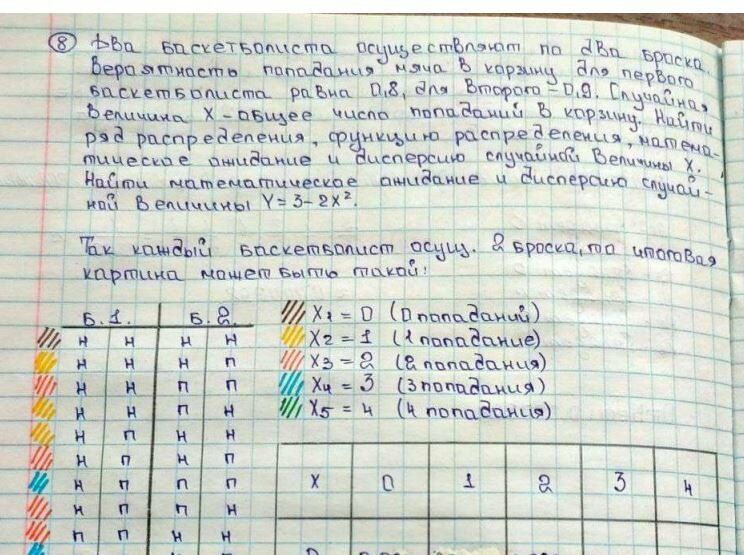 8 Два баскетболиста осуществляют по два броска.
Вероятность попадания мяча в корзину для первого
баскетболиста равна 0,8, для второго – 0,9. Случайная
величина X – общее число попаданий в корзину. Найти
ряд распределения, функцию распределения, матема-
тическое ожидание и дисперсию случайной величины X.
Найти математическое ожидание и дисперсию случай-
ной величины Y = 3 – 2X².
Так каждый баскетболист осущ. 2 броска, то итоговая
картина может быть такой:
Б. 1. Б. 2.
Н Н Н Н
Н Н Н П
Н Н П П
Н Н П Н
Н П Н Н
Н П Н П
Н П П П
Н П П Н
П П Н Н
X1 = 0 (0 попаданий)
X2 = 1 (1 попадание)
X3 = 2 (2 попадания)
X4 = 3 (3 попадания)
X5 = 4 (4 попадания)
X 0 1 2 3 4